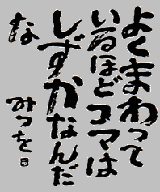 よくまわって
いるほどコマは
しずかなんだ
な
みつを。